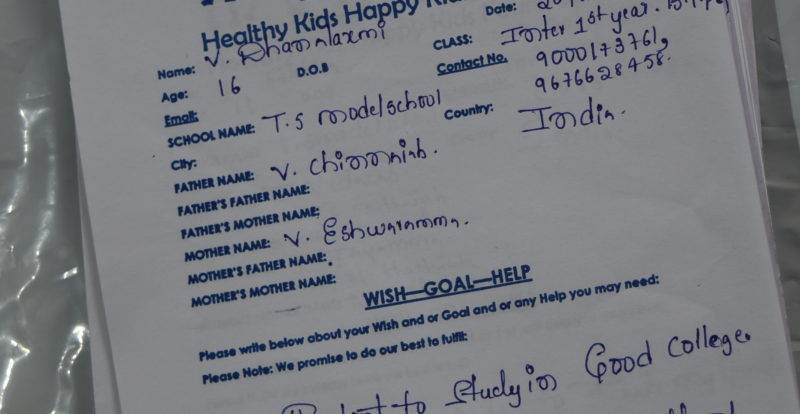 Healthy Kids Happy
Date:
Name: V. Dhanalaxmi
CLASS: Inter 1st year.
Age: 16 D.O.B
Contact No. 9000173761,
9676628458.
Email:
SCHOOL NAME: T.S modelschool
Country: India.
City:
FATHER NAME: V. Chinnaiah.
FATHER'S FATHER NAME:
FATHER'S MOTHER NAME:
MOTHER NAME: V. Eshwaramma.
MOTHER'S FATHER NAME:
MOTHER'S MOTHER NAME:
WISH—GOAL—HELP
Please write below about your Wish and or Goal and or any Help you may need:
Please Note: We promise to do our best to fulfil:
to Study in Good College.